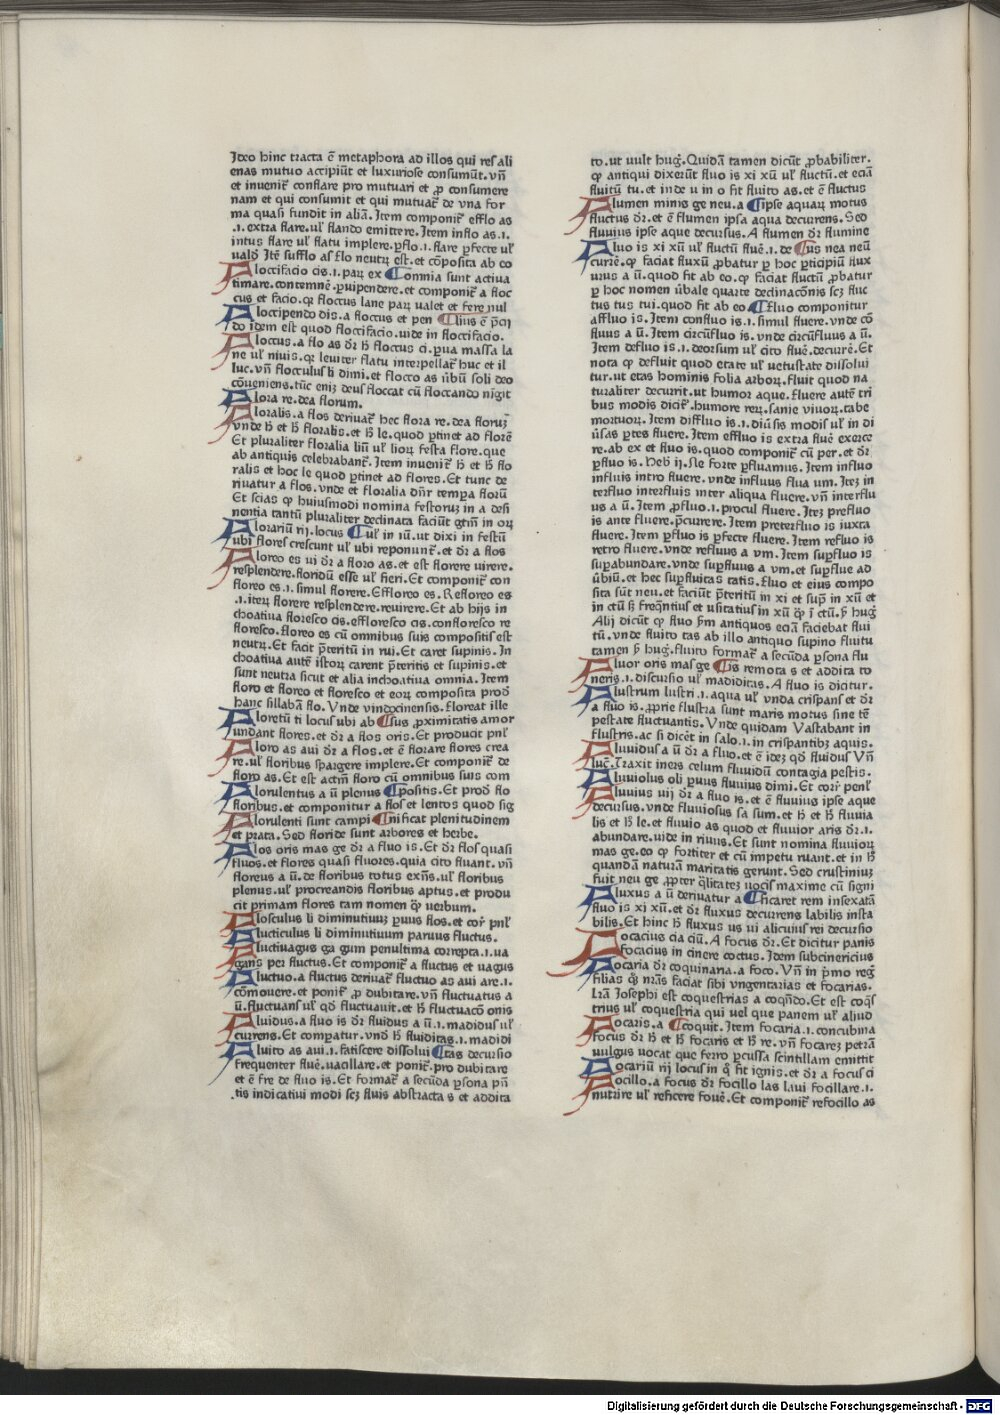 Ideo hinc tracta ē metaphora ad illos qui res ali
enas mutuo accipiūt et luxuriose consumūt. vñ
et inuenit᷑ conflare pro mutuari et ꝓ consumere
nam et qui consumit et qui mutuat᷑ de vna for
ma quasi fundit in aliā. Item componit᷑ efflo as
.i. extra flare. ul᷑ flando emittere. Item inflo as .i.
intus flare ul᷑ flatu implere. ꝑflo .i. flare ꝑfecte ul᷑
ualđ Itē sufflo as flo neutꝝ est. et cōposita ab eo
Floccifacio cis .i. paꝝ ex ¶ omnia sunt actiua
timare. contemnē. ꝑuipendere. et componit᷑ a floc
cus et facio. ꝙ floccus lane paꝝ ualet et fere nul
Floccipendo dis. a floccus et pen ¶ lius ē p̄cij
do idem est quod floccifacio. uide in floccifacio.
Floccus. a flo as dr̄ ħ floccus ci. ꝑua massa la
ne ul᷑ niuis. ꝙ leuiter flatu interpellat᷑ huc et il
luc. vñ flocculus li dimi. et flocco as ūbū soli deo
cōueniens. tūc eniʒ deus floccat cū floccando nīgit
Flora re. dea florum.
Floralis. a flos deriuat᷑ hec flora re. dea floruʒ
vnde ħ et ħ floralis. et ħ le. quod ꝑtinet ad florē
Et pluraliter floralia liū ul᷑ lioꝝ festa flore. que
ab antiquis celebrabant᷑. Item inuenit᷑ ħ et ħ flo
ralis et hoc le quod ꝑtinet ad flores. Et tunc de
riuatur a flos. vnde et floralia dn̄r tempa florū
Et scias ꝙ huiusmodi nomina festoruʒ in a desi
nentia tantū pluraliter declinata faciūt gtm̄ in oꝝ
Florariū rij. locus ¶ ul᷑ in iū. ut dixi in festū
ubi flores crescunt ul᷑ ubi reponunt᷑. et dr̄ a flos
Floreo es ui dr̄ a floro as. et est florere uirere.
resplendere. floridū esse ul᷑ fieri. Et componit᷑ con
floreo es .i. simul florere. Effloreo es. Refloreo es
.i. iteꝝ florere resplendere. reuirere. Et ab hijs in
choatiua floresco cis. effloresco cis. confloresco re
floresco. floreo es cū omnibus suis compositis est
neutꝝ. Et facit p̄teritū in rui. Et caret supinis. In
choatiua autē istoꝝ carent p̄teritis et supinis. et
sunt neutra sicut et alia inchoatiua omnia. Item
floro et floreo et floresco et eoꝝ composita prođ
hanc sillabā flo. Vnde vindocinensis. floreat ille
Floretū ti locus ubi ab ¶ sus ꝓximitatis amor
undant flores. et dr̄ a flos oris. Et producit pnl᷑
Floro as aui dr̄ a flos. et ē florare flores crea
re. ul᷑ floribus spargere implere. Et componit᷑ de
floro as. Et est actm̄ floro cū omnibus suis com
Florulentus a ū plenus ¶ positis. Et prođ flo
floribus. et componitur a flos et lentos quod sig
Florulenti sunt campi ¶ nificat plenitudinem
et prata. Sed floride sunt arbores et herbe.
Flos oris mas ge dr̄ a fluo is. Et dr̄ flos quasi
fluos. et flores quasi fluores. quia cito fluant. vñ
floreus a ū. de floribus totus exñs. ul᷑ floribus
plenus. ul᷑ procreandis floribus aptus. et produ
cit primam flores tam nomen ꝙ uerbum.
Flosculus li diminutiuuʒ ꝑuus flos. et cor᷑ pnl᷑
Flucticulus li diminutiuum paruus fluctus.
Fluctiuagus ga gum penultima correpta .i. ua
gans per fluctus. Et componit᷑ a fluctus et uagus
Fluctuo. a fluctus deriuat᷑ fluctuo as aui are .i.
cōmouere. et ponit᷑ ꝓ dubitare. vñ fluctuatus a
ū. fluctuans ul᷑ qđ fluctuauit. et ħ fluctuacō onis
Fluidus. a fluo is dr̄ fluidus a ū .i. madidus ul᷑
currens. Et comꝑatur. vnđ ħ fluiditas .i. madidi
Fluito as aui .i. fatiscere dissolui ¶ tas decursio
frequenter fluē. uacillare. et ponit᷑. pro dubitare
et ē fre de fluo is. Et format᷑ a secūda ꝑsona pñ
tis indicatiui modi scʒ fluis abstracta s et addita
to. ut uult hug̓. Quidā tamen dicūt ꝓbabiliter.
ꝙ antiqui dixerūt fluo is xi xū ul᷑ fluctū. et eciā
fluitū tu. et inde u in o fit fluito as. et ē fluctus
Flumen minis ge neu. a ¶ ipse aquaꝝ motus
fluctus dr̄. et ē flumen ipsa aqua decurrens. Sed
fluuius ipse aque decursus. A flumen dr̄ flumine
Fluo is xi xū ul᷑ fluctū fluē .i. de ¶ us nea neū
currē. ꝙ faciat fluxū ꝓbatur ꝑ hoc ꝑticipiū flux
urus a ū. quod fit ab eo. ꝙ faciat fluctū ꝓbatur
ꝑ hoc nomen ūbale quarte declinacōnis scʒ fluc
tus tus tui. quod fit ab eo ¶ fluo componitur
affluo is. Item confluo is .i. simul fluere. vnde cō
fluus a ū. Item circūfluo is. vnde circūfluus a ū.
Item defluo is .i. deorsum ul᷑ cito fluē. decurrē. Et
nota ꝙ defluit quod etate ul᷑ uetustate dissolui
tur. ut etas hominis folia arboꝝ. fluit quod na
turaliter decurit. ut humor aque. fluere autē tri
bus modis dicit᷑. humore reꝝ. sanie viuoꝝ. tabe
mortuoꝝ. Item diffluo is .i. diūsis modis ul᷑ in di
ūsas ꝑtes fluere. Item effluo is extra fluē exerce
re. ab ex et fluo is. quod componit᷑ cū per. et dr̄
ꝑfluo is. Heb̓ ij. Ne forte ꝑfluamus. Item influo
influis intro fluere. vnde influus flua um. Iteʒ in
terfluo interfluis inter aliqua fluere. vñ interflu
us a ū. Item ꝓfluo .i. procul fluere. Iteʒ prefluo
is ante fluere. p̄currere. Item preterfluo is iuxta
fluere. Item ꝑfluo is ꝑfecte fluere. Item refluo is
retro fluere. vnde refluus a vm. Item suꝑfluo is
suꝑabundare. vnde suꝑfluus a vm. et suꝑflue ad
ūbiū. et hec suꝑfluitas tatis. fluo et eius compo
sita sūt neu. et faciūt p̄teritū in xi et sup̄ in xū et
in ctū ſꝫ freq̄ntius et usitatius in xū ꝙ i ctū. ꝑ hug̓
Alij dicūt ꝙ fluo ꝑm antiquos eciā faciebat flui
tū. vnde fluito tas ab illo antiquo supino fluitu
tamen ꝑ hug̓. fluito format᷑ a secūda ꝑsona flu
Fluor oris mas ge ¶ is remota s et addita to
neris .i. discursio ul᷑ madiditas. A fluo is dicitur.
Flustrum lustri .i. aqua ul᷑ vnda crispans et dr̄
a fluo is. ꝓprie flustra sunt maris motus sine tē
pestate fluctuantis. Vnde quidam Vastabant in
flustris. ac si dicēt in salo .i. in crispantibʒ aquis.
Fluuidus a ū dr̄ a fluo. et ē ideʒ qđ fluidus Vñ
luc̄. Traxit iners celum fluuidū contagia pestis.
Fluuiolus oli ꝑuus fluuius dimi. Et cor᷑ penl᷑
Fluuius uij dr̄ a fluo is. et ē fluuius ipse aque
decursus. vnde fluuiosus sa sum. et ħ et ħ fluuia
lis et ħ le. et fluuio as quod et fluuior aris dr̄ .i.
abundare. uide in riuus. Et sunt nomina fluuioꝝ
mas ge. eo ꝙ fortiter et cū impetu ruant. et in ħ
quandā naturā maritatis gerunt. Sed crustiniuʒ
fuit neu ge ꝓpter q̄litateʒ uocis maxime cū signi
Fluxus a ū deriuatur a ¶ ficaret rem insexatā
fluo is xi xū. et dr̄ fluxus decurrens labilis insta
bilis. Et hinc ħ fluxus us ui alicuius rei decursio
Focacius cia ciū. A focus dr̄. Et dicitur panis
focacius in cinere coctus. Idem subcinericius
Focaria dr̄ coquinaria. a foco. Vñ in p̓mo reg᷑
filias ꝙ nr̄as faciet sibi vngentarias et focarias.
Lr̄a Iosephi est coquestrias a coqn̄do. Et est coq̄s
trius ul᷑ coquestria qui vel que panem ul᷑ aliud
Focaris. a ¶ coquit. Item focaria .i. concubina
focus dr̄ ħ et ħ focaris et ħ re. vñ focareʒ petrā
uulgus uocat que ferro ꝑcussa scintillam emittit
Focariū rij locus in q̊ fit ignis. et dr̄ a focus ci
Focillo. a focus dr̄ focillo las laui focillare .i.
nutrire ul᷑ reficere fouē. Et componit᷑ refocillo as
Digitalisierung gefördert durch die Deutsche Forschungsgemeinschaft - DFG